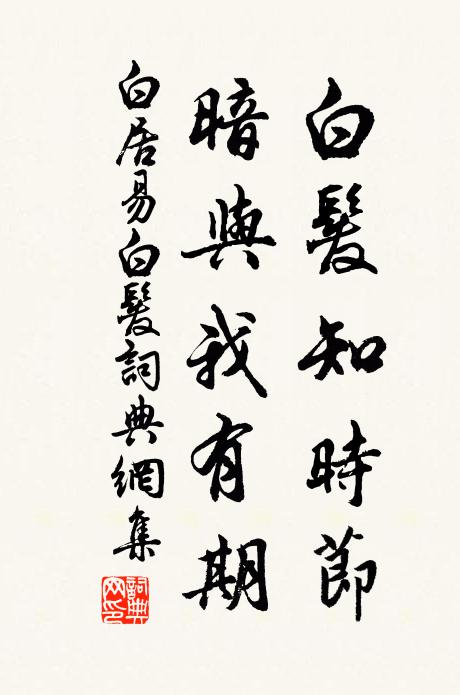 白髮知時節
暗與我有期
白居易白髮詞典網集
詞典網印